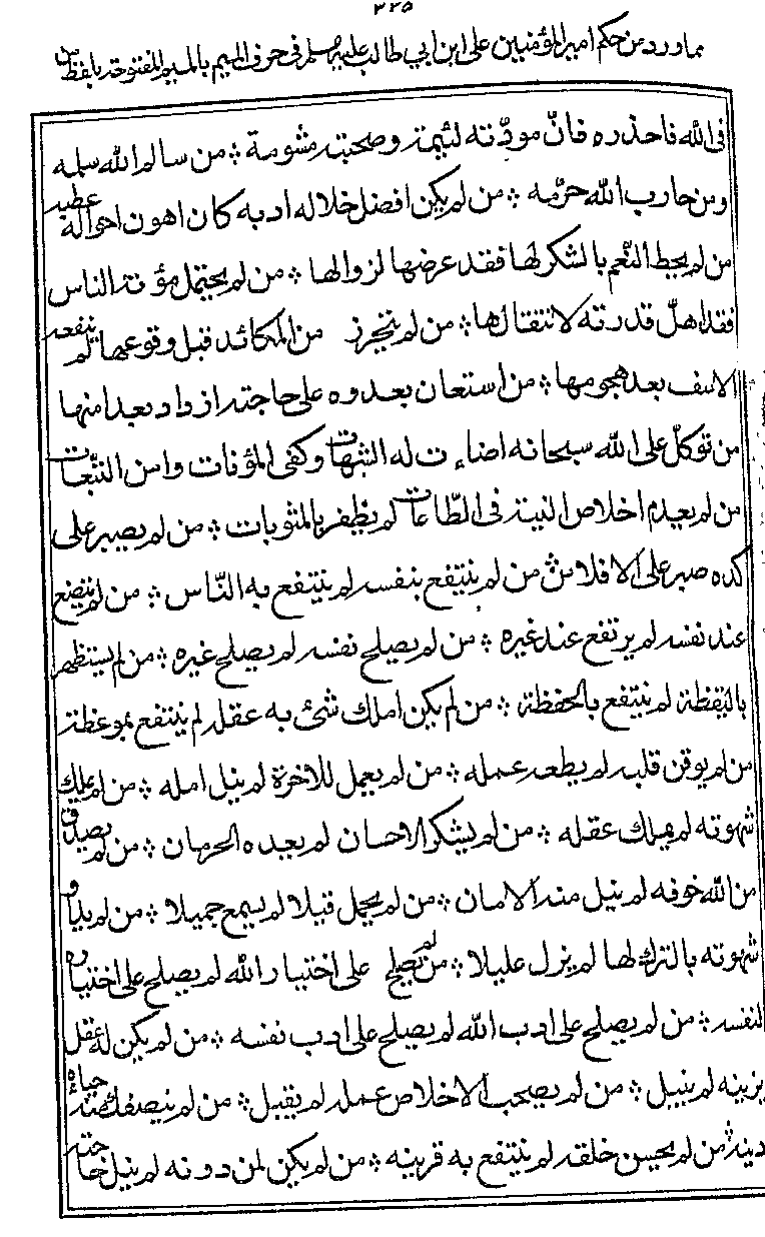 ٣٢٥
مما ورد من حكم امير المؤمنين على ابن ابي طالب عليه سلم في حرف الميم بالميم المفتوحة بلفظ من
فى الله فاحذره فانّ مودّته لئيمة وصحبته مشومة ؞ من سالم الله سلمه
ومن حارب الله حرّمه ؞ من لم يكن افضل خلاله ادبه كان اهون احواله عطبه
من لم يحط النّعم بالشكر لها فقد عرضها لزوالها ؞ من لم يحتمل مؤنة الناس
فقد اهلّ قدرته لانتقالها ؞ من لم يتحرز من المكائد قبل وقوعها لم ينفعه
الاسف بعد هجومها ؞ من استعان بعدوه على حاجته ازداد بعدا منها
من توكّل على الله سبحانه اضاءت له الشبهات وكفى المؤنات وامن التّبعات
من لم يعدم اخلاص النية فى الطّاعات لم يظفر بالمثوبات ؞ من لم يصبر على
كده صبر على الافلاس ؞ من لم ينتفع بنفسه لم ينتفع به النّاس ؞ من لم يتضع
عند نفسه لم يرتفع عند غيره ؞ من لم يصلح نفسه لم يصلح غيره ؞ من لم يستظهر
باليقظة لم ينتفع بالحفظة ؞ من لم يكن املك شئ به عقله لم ينتفع بموعظة
من لم يوقن قلبه لم يطعه عمله ؞ من لم يعمل للاخرة لم ينل امله ؞ من لم يملك
شهوته لم يملك عقله ؞ من لم يشكر الاحسان لم يعده الحرمان ؞ من لم يصدق
من الله خوفه لم ينل منه الامان ؞ من لم يحمل قيلا لم يسمع جميلا ؞ من لم يداو
شهوته بالترك لها لم يزل عليلا ؞ من لم يصلح على اختيار الله لم يصلح على اختياره
لنفسه ؞ من لم يصلح على ادب الله لم يصلح على ادب نفسه ؞ من لم يكن له عقل
يزينه لم ينبل ؞ من لم يصحب الاخلاص عمله لم يقبل ؞ من لم ينصفك منه حياؤه
دينه ؞ من لم يحسن خلقه لم ينتفع به قرينه ؞ من لم يكن لمن دونه لم ينل حاجته